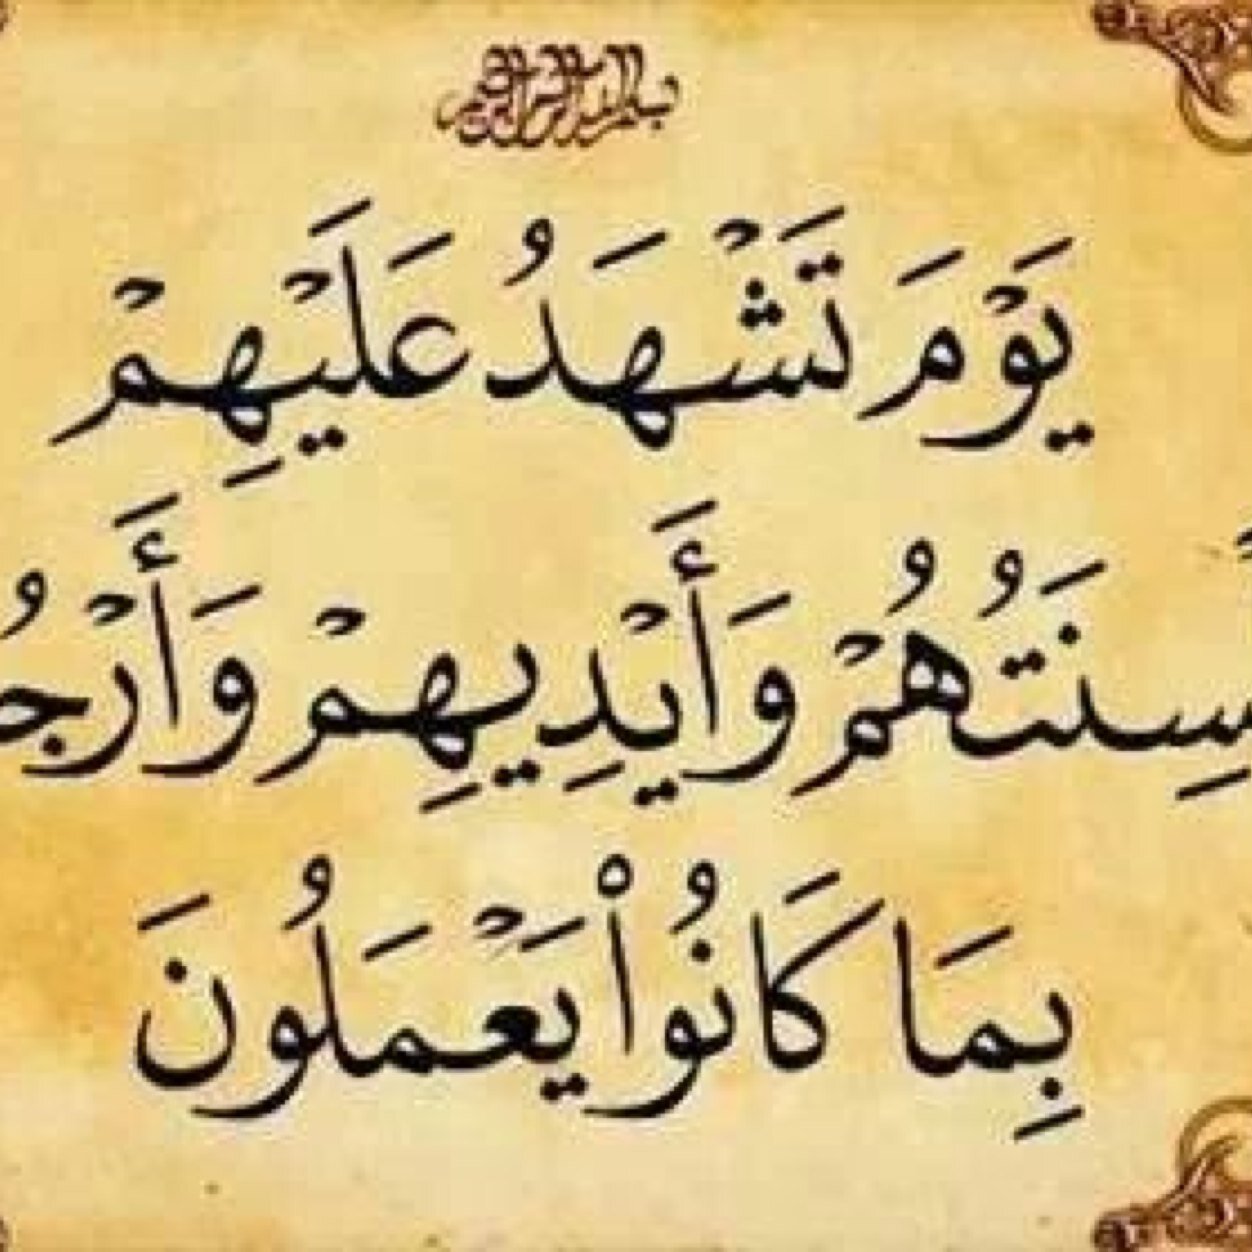 بسم الله الرحمن الرحيم
يَوْمَ تَشْهَدُ عَلَيْهِمْ
سِنَتُهُمْ وَأَيْدِيهِمْ وَأَرْجُ
بِمَا كَانُوا۟ يَعْمَلُونَ